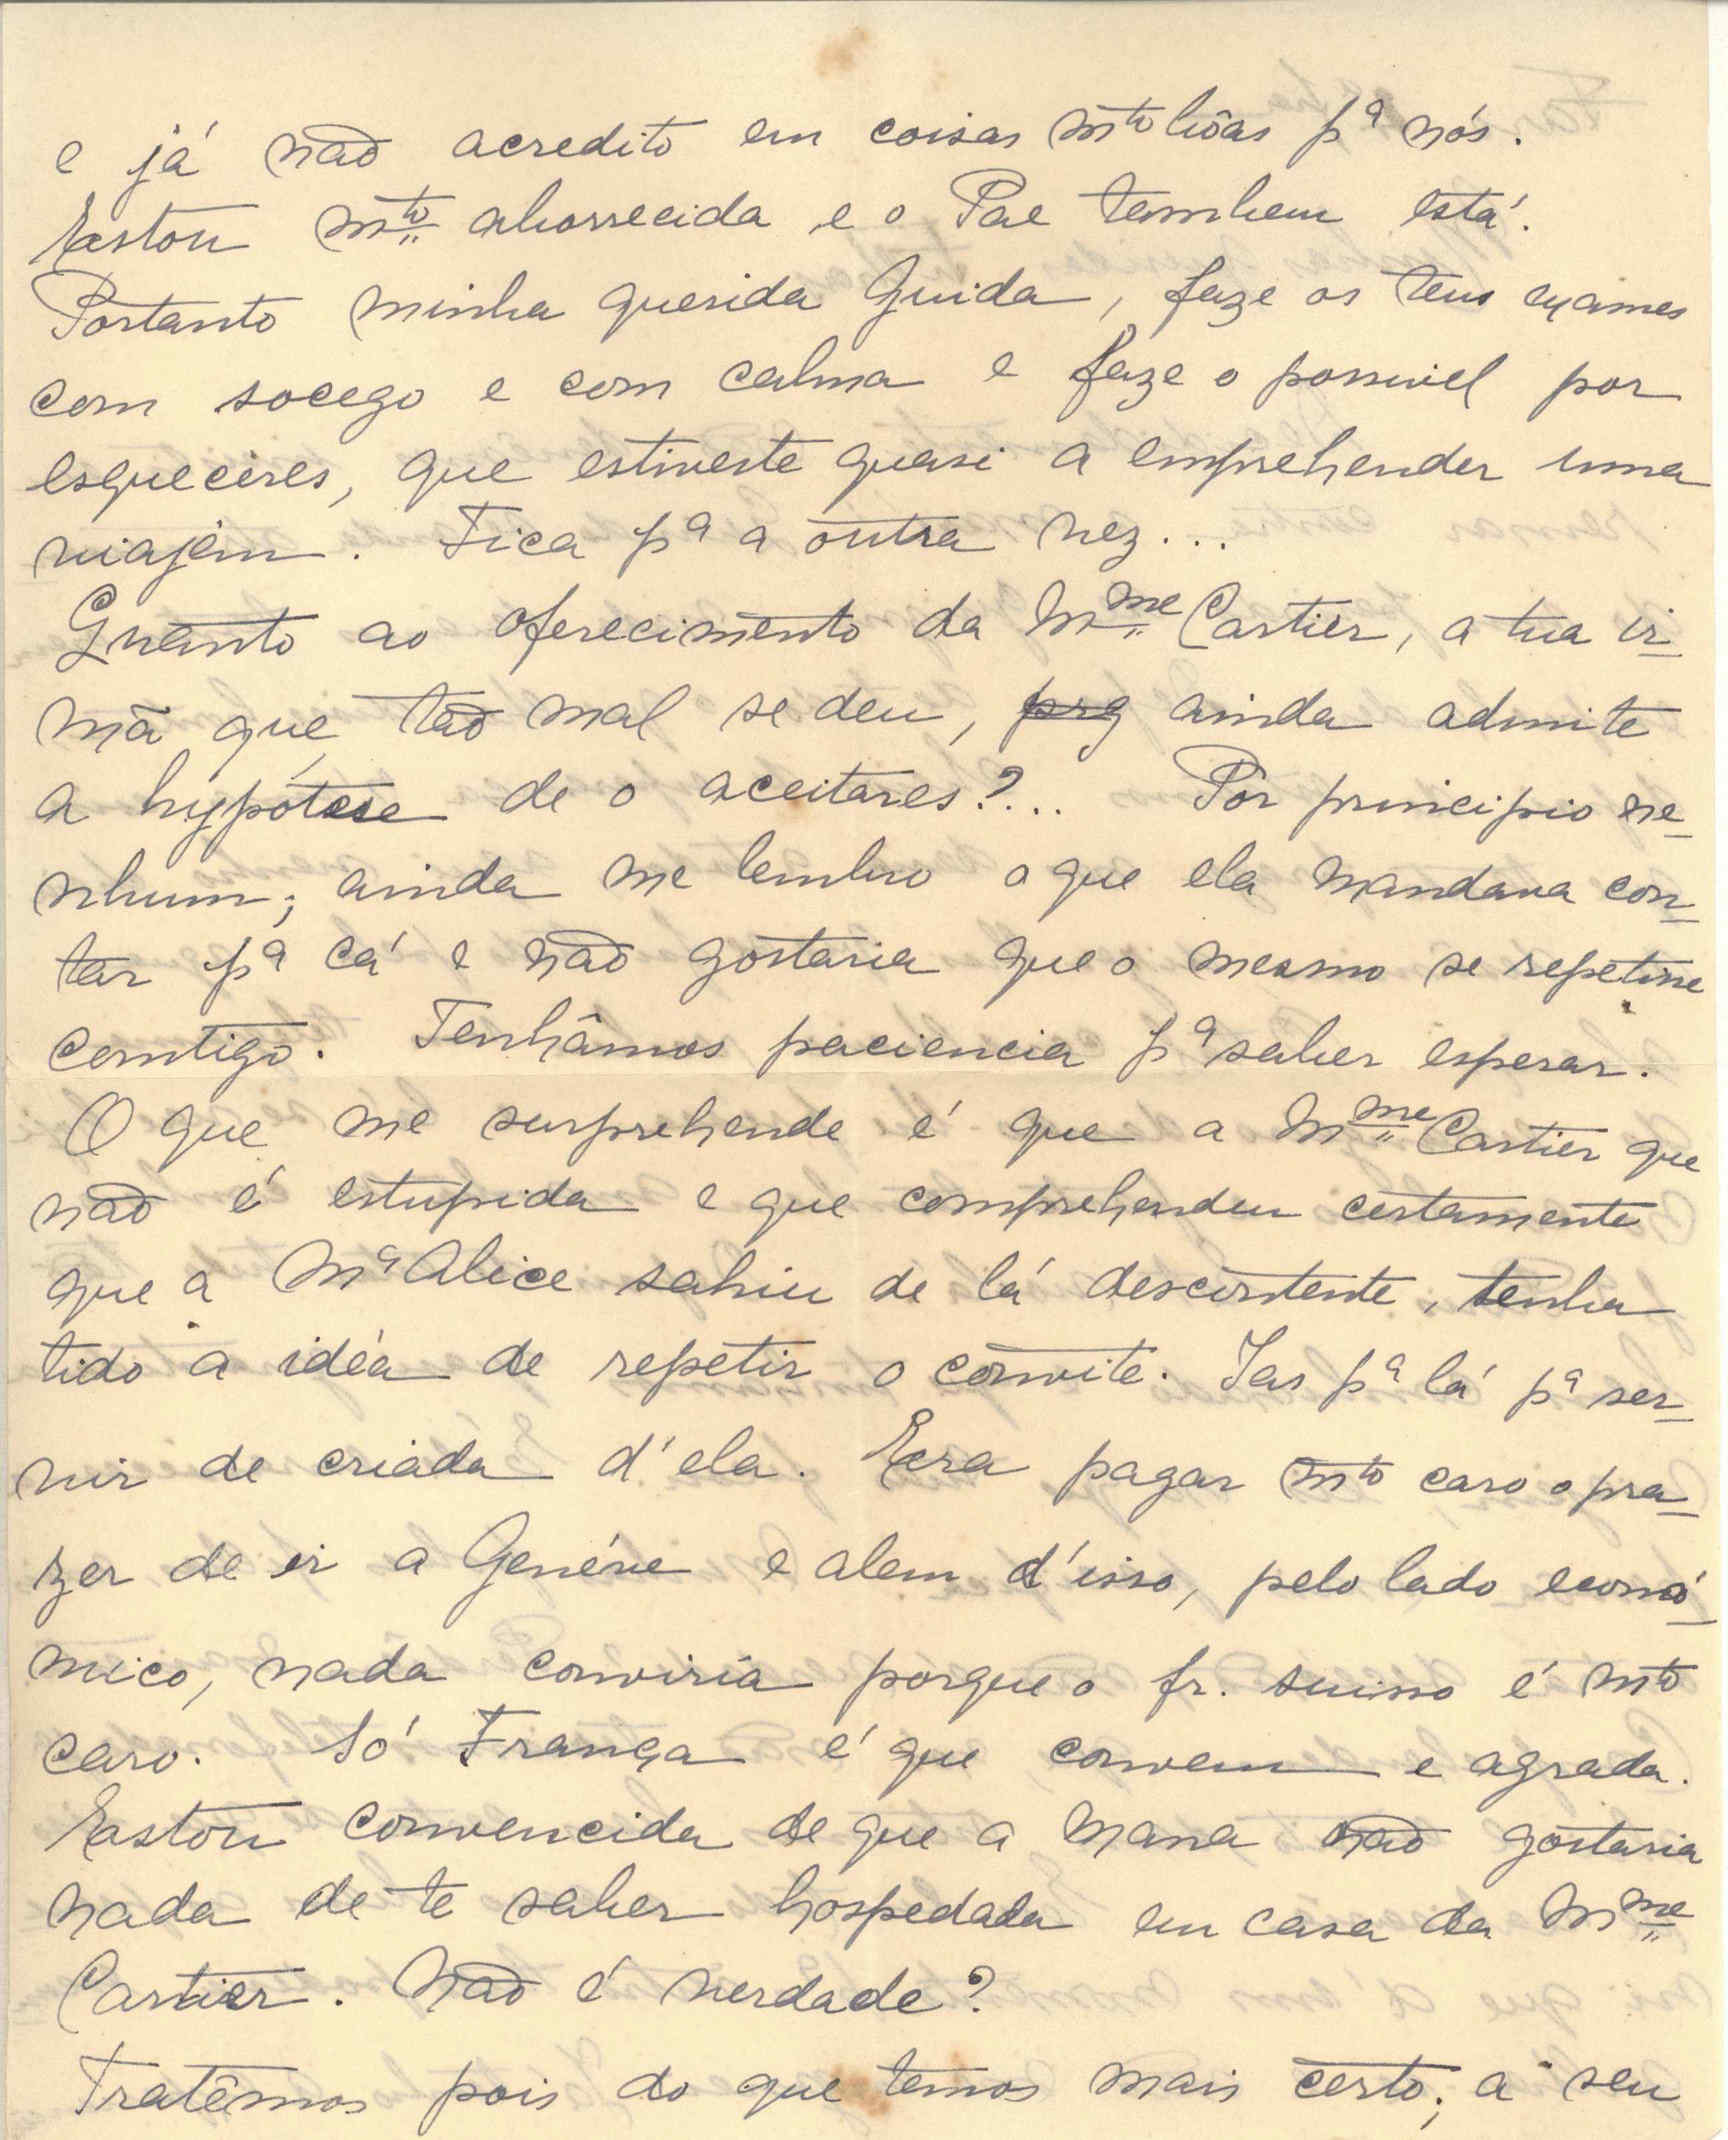 e já não acredito em coisas mto bôas pª nós.
Estou mto aborrecida e o Pae tambem está.
Portanto minha querida Guida, faze os teus exames
com socego e com calma e faze o possivel por
esqueceres, que estiveste quasi a emprehender uma
viajem. Fica pª a outra vez...
Quanto ao oferecimento da Mme Cartier, a tua ir-
mã que tão mal se deu, prq ainda admite
a hypótese de o aceitares?... Por principio ne-
nhum; ainda me lembro o que ela mandava con-
tar pª cá e não gostaria que o mesmo se repetisse
comtigo. Tenhâmos paciencia pª saber esperar.
O que me surprehende é que a Mme Cartier que
não é estupida e que comprehendeu certamente
que a Mª Alice sahiu de lá descontente, tenha
tido a idéa de repetir o convite. Ias pª lá pª ser-
vir de criada d'ela. Era pagar mto caro o pra-
zer de ir a Genéve e alem d'isso, pelo lado econó-
mico, nada conviria porque o fr. suisso é mto
caro. Só França é que convem e agrada.
Estou convencida de que a Mana não gostaria
nada de te saber hospedada em casa da Mme
Cartier. Não é verdade?
Tratêmos pois do que temos mais certo; a seu